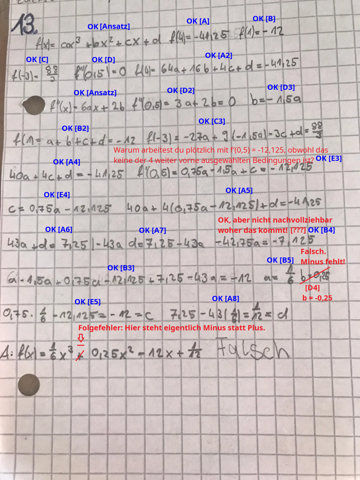 13.
OK [Ansatz] OK [A] OK [B]
f(x) = ax³ + bx² + cx + d f(4) = -41,25 f(1) = -12
OK [C] OK [D] OK [A2]
f(-3) = 88/3 f''(0,5) = 0 f(4) = 64a + 16b + 4c + d = -41,25
OK [Ansatz] OK [D2] OK [D3]
f''(x) = 6ax + 2b f''(0,5) = 3a + 2b = 0 b = -1,5a
OK [B2] OK [C3]
f(1) = a + b + c + d = -12 f(-3) = -27a + 9(-1,5a) - 3c + d = 88/3
Warum arbeitest du plötzlich mit f'(0,5) = -12,125, obwohl das
keine der 4 weiter vorne ausgewählten Bedingungen ist?
OK [A4] OK [E3]
40a + 4c + d = -41,25 f'(0,5) = 0,75a - 1,5a + c = -12,125
OK [E4] OK [A5]
c = 0,75a - 12,125 40a + 4(0,75a - 12,125) + d = -41,25
OK [A6] OK [A7] OK, aber nicht nachvollziehbar
woher das kommt! [???] OK [B4]
43a + d = 7,25 |-43a d = 7,25 - 43a -42,75a = -7,125
OK [B3] OK [B5] Falsch.
Minus fehlt!
a - 1,5a + 0,75a - 12,125 + 7,25 - 43a = -12 a = 1/6 b = 0,25
[D4]
b = -0,25
OK [E5] OK [A8]
0,75 · 1/6 - 12,125 = -12 = c 7,25 - 43(1/6) = 1/12 = d
Folgefehler: Hier steht eigentlich Minus statt Plus.
A: f(x) = 1/6 x³ + 0,25x² - 12x + 1/12 Falsch